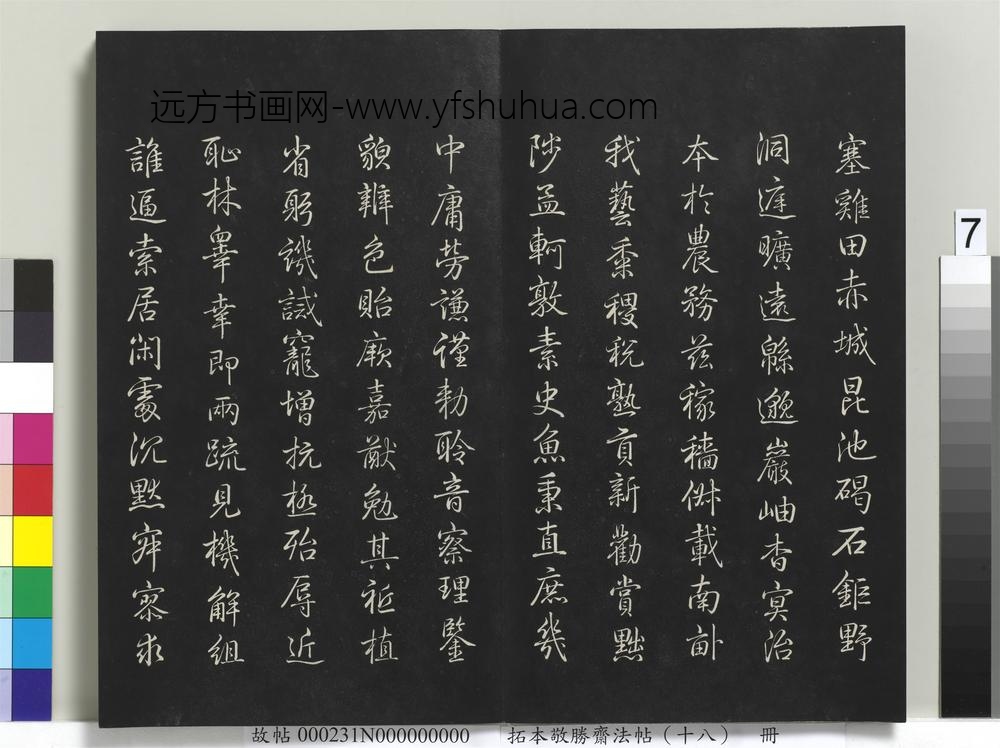 远方书画网-www.yfshuhua.com
塞雞田赤城昆池碣石鉅野
洞庭曠遠緜邈巖岫杳冥治
本於農務茲稼穡俶載南畝
我藝黍稷稅熟貢新勸賞黜
陟孟軻敦素史魚秉直庶幾
中庸勞謙謹勑聆音察理鑒
貌辨色貽厥嘉猷勉其祗植
省躬譏誡寵增抗極殆辱近
恥林皋幸即兩疏見機解組
誰逼索居閑處沉默寂寥求
7
故帖 000231N000000000 拓本敬勝齋法帖（十八） 冊